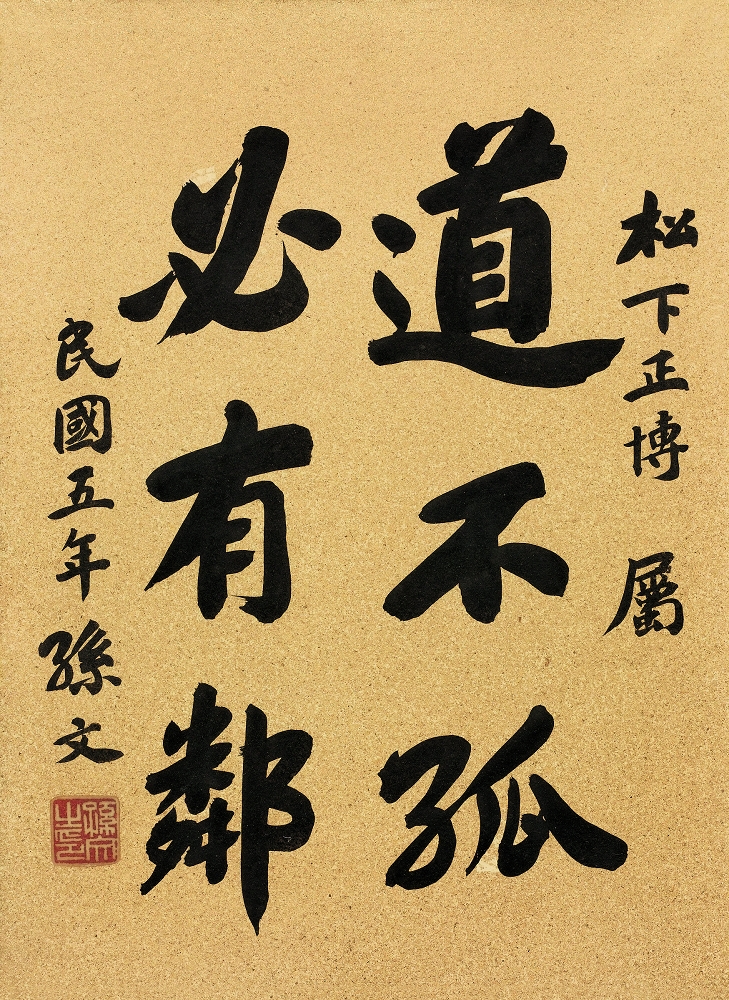 松下正博 屬
道不孤
必有鄰
民國五年 孫文
孫文之印